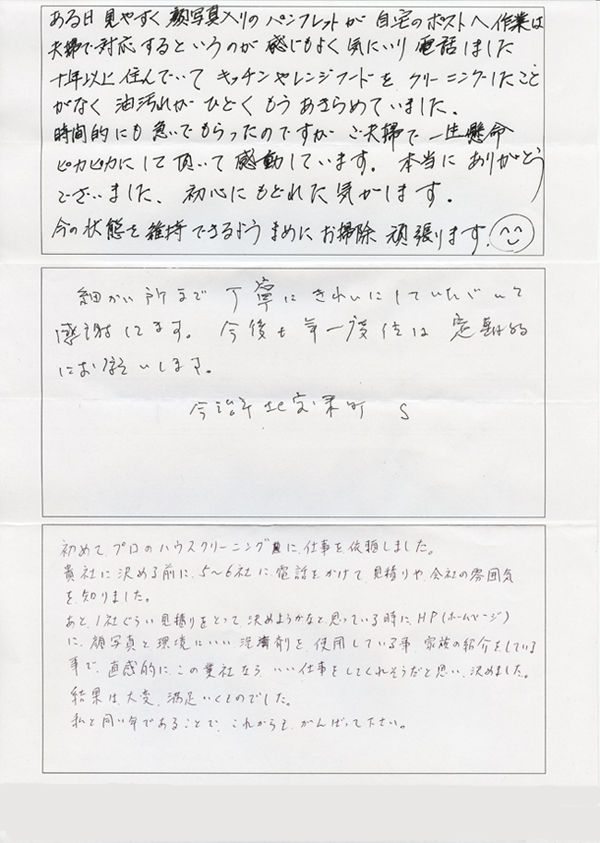 ある日 見やすく 顔写真入りの パンフレットが 自宅のポストへ 作業は
夫婦で対応するというのが 感じもよく 気にいり 電話しました
十年以上 住んでいて キッチンやレンジフードを クリーニングしたこと
がなく 油汚れが ひどく もう あきらめていました.
時間的にも 急いでもらったのですが ご夫婦で 一生懸命
ピカピカにして頂いて 感動しています. 本当に ありがとう
ございました. 初心にもどれた 気がします.
今の状態を 維持できるよう まめに お掃除 頑張ります.
細かい所まで 丁寧に きれいにしていただいて
感謝してます。 今後も 年一度位は 定期的
にお願いします。
今治市 S
初めて、プロのハウスクリーニングに、仕事を依頼しました。
貴社に 決める前に、5〜6社に、電話をかけて、見積りや、会社の雰囲気
を、知りました。
あと、1社ぐらい 見積りをとって、決めようかなと 思っている時に、HP(ホームページ)
に、顔写真と 環境にいい 洗濯剤を、使用している事、家族の紹介をしている
事で、直感的に、この業社なら、いい仕事をしてくれそうだと思い、決めました。
結果は、大変、満足いくものでした。
私と同い年であることで、これからも、がんばって下さい。